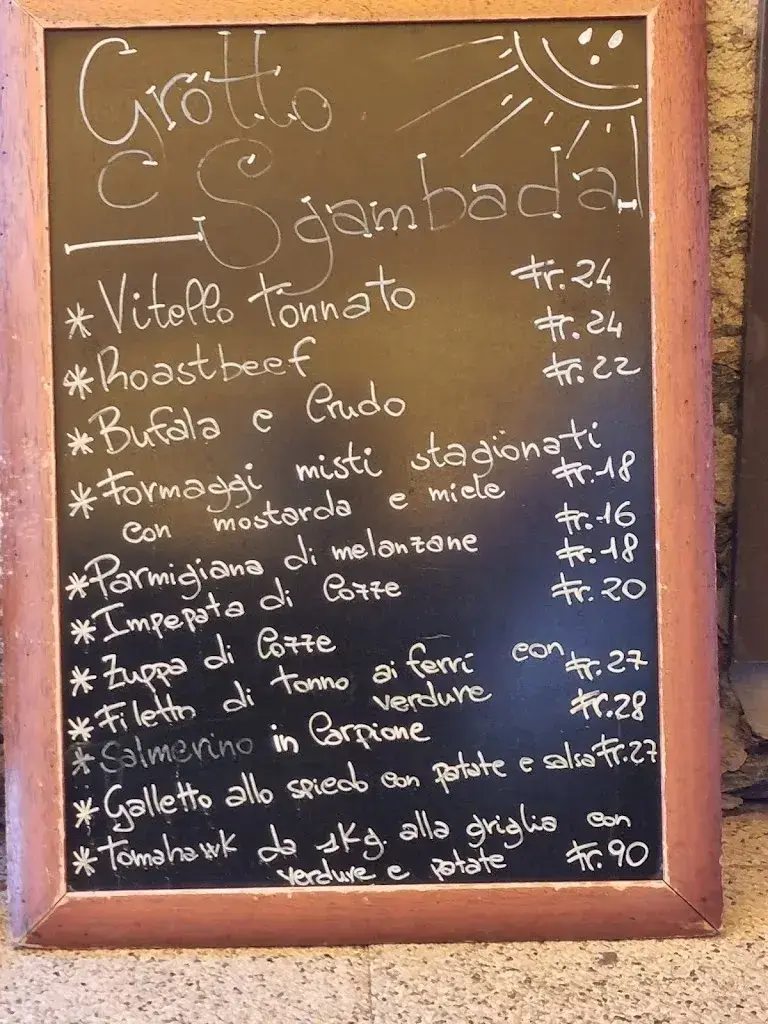 Grotto
C Sgambada
* Vitello tonnato Fr. 24
* Roastbeef Fr. 24
* Bufala e Crudo Fr. 22
* Formaggi misti stagionati
con mostarda e miele Fr. 18
* Parmigiana di melanzane Fr. 16
* Impepata di Cozze Fr. 18
* Zuppa di Cozze Fr. 20
* Filetto di tonno ai ferri con
verdure Fr. 27
* Salmerino in Carpione Fr. 28
* Galletto allo spiedo con patate e salsa Fr. 27
* Tomahawk da 1Kg. alla griglia con
verdure e patate Fr. 90